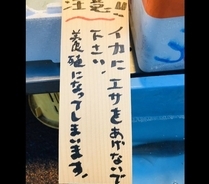 注意!!
イカにエサをあげないで
下さい。
美良殖になってしまいます。